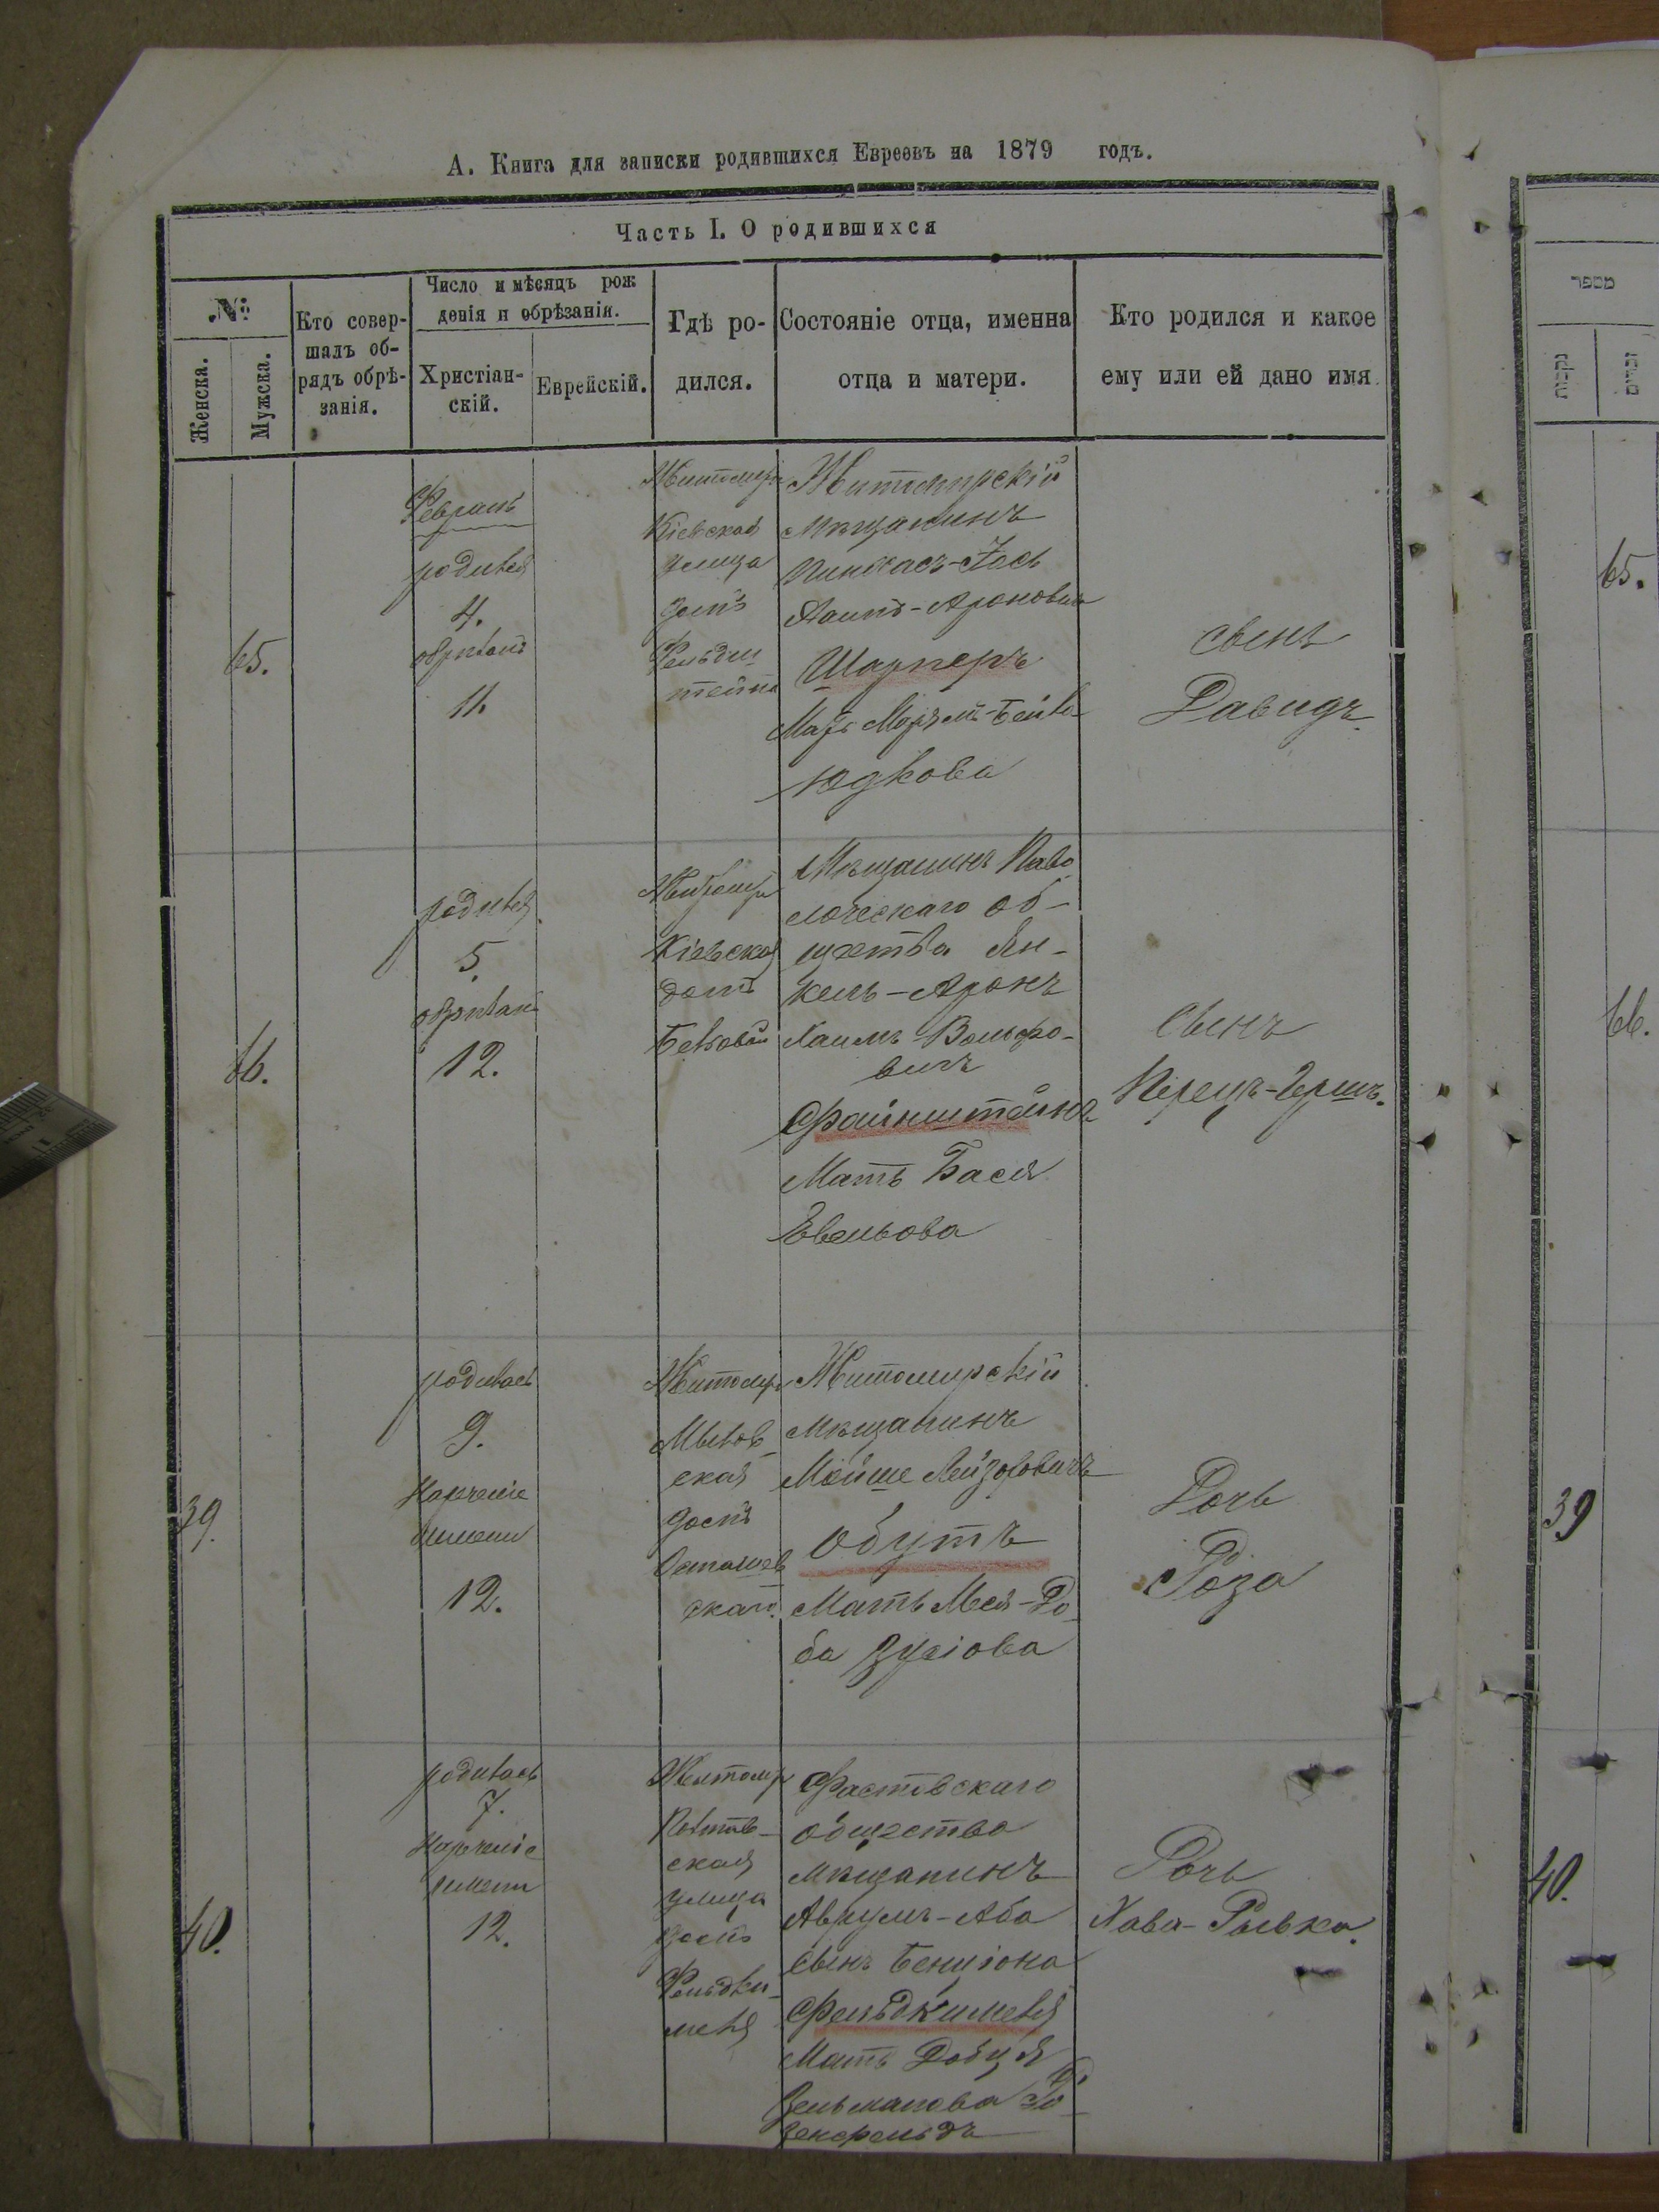 А. Книга для записки родившихся Евреевъ на 1879 годъ.
Часть I. О родившихся
№
Женска.
Мужска.
Кто совер-
шалъ об-
рядъ обрѣ-
занія.
Число и мѣсяцъ рож
денія и обрѣзанія.
Христіан-
скій.
Еврейскій.
Гдѣ ро-
дился.
Состояніе отца, именна
отца и матери.
Кто родился и какое
ему или ей дано имя
65.
Февраль
родился
4.
обрѣзанъ
11.
Житомиръ
Кіевская
улица
домъ
Фельдш
тейна
Житомирскій
мѣщанинъ
Пинхасъ-Іось
Хаимъ-Ароновичъ
Шарперъ
Мать Маріямъ-Бейла
Юдкова
сынъ
Давидъ
66.
родился
5.
обрѣзанъ
12.
Житомиръ
Кіевская
домъ
Мѣщанинъ Паво
лочскаго об-
щества Ян-
кель-Аронъ
Хаимъ Вольфо-
вичъ
Файнштейнъ
Мать Бася
Евельова
Сынъ
Перецъ-Гершъ.
39.
родилась
9.
Нареченіе
имени
12.
Житомиръ
ская
домъ
Осташев
скаго
Житомирскій
мѣщанинъ
Мойше Лейзоровичъ
Обутъ
Мать Мся-До
ба Зусіова
Дочь
Роза
40.
родилась
7.
Нареченіе
имени
12.
Житомиръ
ская
улица
домъ
Фельдки-
меля
Фастовскаго
общества
мѣщанинъ
Аврумъ-Аба
сынъ Бенціона
Фельдкимеля
Мать Добця
Зельманова Ро
зенфельдъ
Дочь
Хава-Рывка.
מספר
נקבות
זכרים
65.
66.
39
40.